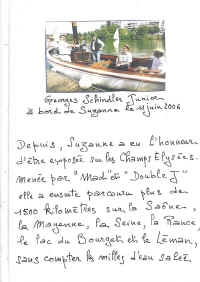 Georges Schindler Junior
à bord de Suzanne le 4 juin 2006
Depuis, Suzanne a eu l'honneur
d'être exposée sur les Champs Elysées.
menée par "Mad" et "Double J"
elle a ensuite parcouru plus de
1500 kilomètres sur la Saône,
la Mayenne, la Seine, la Rance,
le lac du Bourget et le Léman,
sans compter les milles d'eau salée